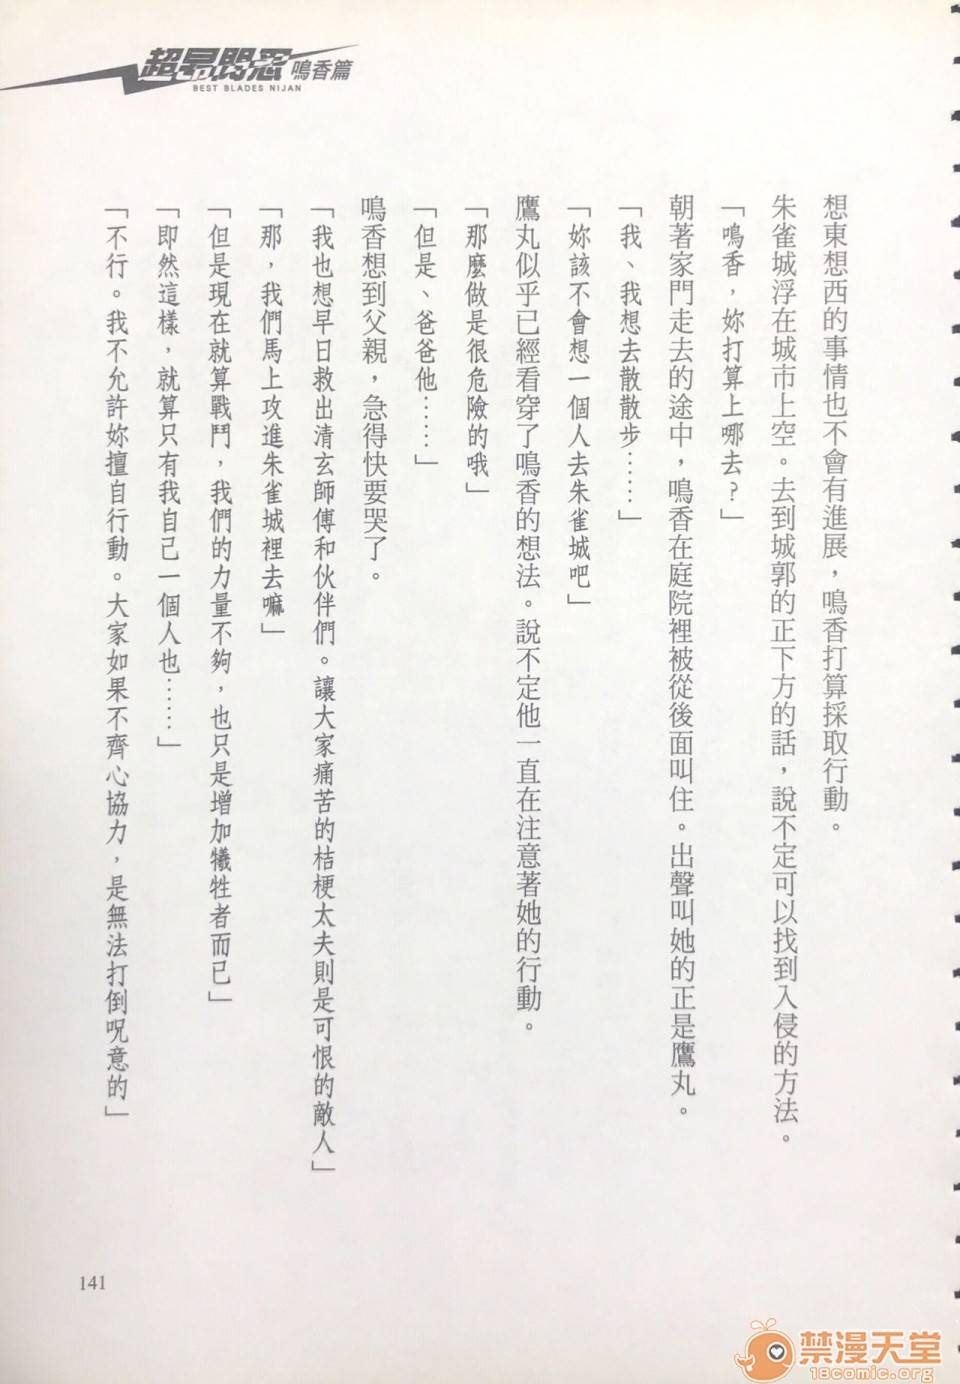 超昂閃忍 鳴香篇
BEST BLADES NIJAN
想東想西的事情也不會有進展，鳴香打算採取行動。
朱雀城浮在城市上空。去到城郭的正下方的話，說不定可以找到入侵的方法。
「鳴香，妳打算上哪去？」
朝著家門走去的途中，鳴香在庭院裡被從後面叫住。出聲叫她的正是鷹丸。
「我、我想去散散步……」
「妳該不會想一個人去朱雀城吧」
鷹丸似乎已經看穿了鳴香的想法。說不定他一直在注意著她的行動。
「那麼做是很危險的哦」
「但是、爸爸他……」
鳴香想到父親，急得快要哭了。
「我也想早日救出清玄師傅和伙伴們。讓大家痛苦的桔梗太夫則是可恨的敵人」
「那，我們馬上攻進朱雀城裡去嘛」
「但是現在就算戰鬥，我們的力量不夠，也只是增加犧牲者而已」
「即然這樣，就算只有我自己一個人也……」
「不行。我不允許妳擅自行動。大家如果不齊心協力，是無法打倒呪意的」
141
禁漫天堂
18comic.org